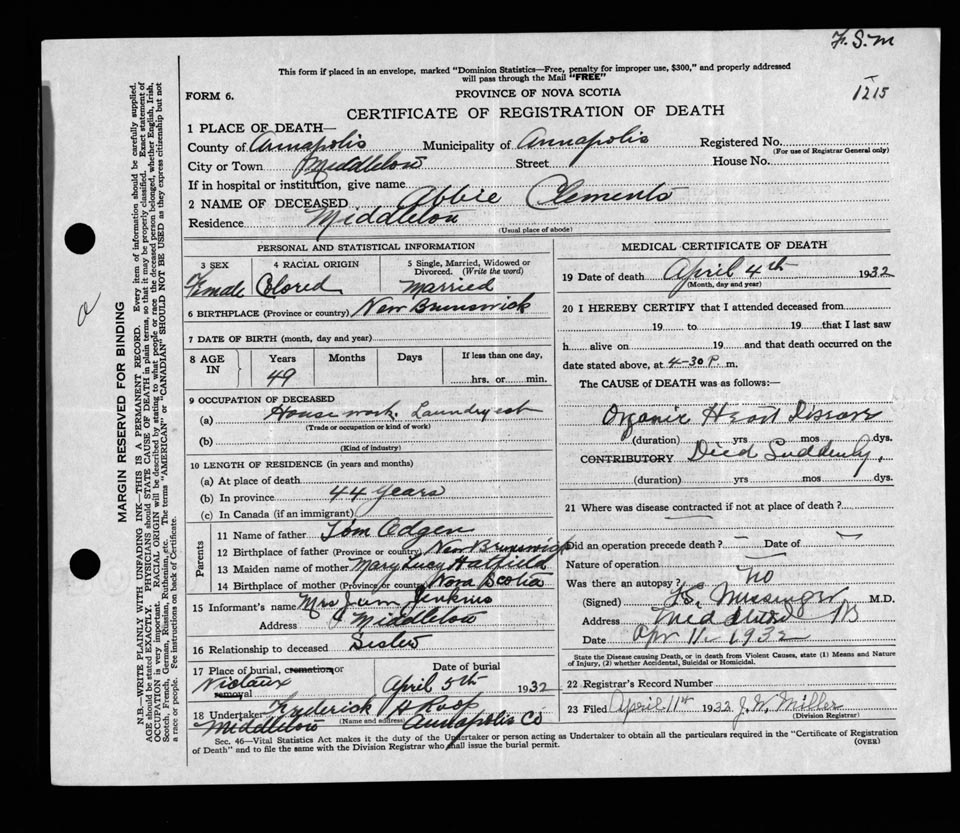 F. S. M
1215
This form if placed in an envelope, marked "Dominion Statistics—Free, penalty for improper use, $300," and properly addressed
will pass through the Mail "FREE"
FORM 6.
PROVINCE OF NOVA SCOTIA
CERTIFICATE OF REGISTRATION OF DEATH
1 PLACE OF DEATH—
County of Annapolis Municipality of Annapolis Registered No.
(For use of Registrar General only)
City or Town Middleton Street House No.
If in hospital or institution, give name
2 NAME OF DECEASED Abbie Clements
Residence Middleton
(Usual place of abode)
PERSONAL AND STATISTICAL INFORMATION
3 SEX 4 RACIAL ORIGIN 5 Single, Married, Widowed or
Divorced. (Write the word)
Female Colored Married
6 BIRTHPLACE (Province or country) New Brunswick
7 DATE OF BIRTH (month, day and year)
8 AGE IN Years Months Days If less than one day,
49 hrs. or min.
9 OCCUPATION OF DECEASED
(a) House work. Laundry est
(Trade or occupation or kind of work)
(b)
(Kind of industry)
10 LENGTH OF RESIDENCE (in years and months)
(a) At place of death
(b) In province 44 years
(c) In Canada (if an immigrant)
Parents
11 Name of father Tom Odgen
12 Birthplace of father (Province or country) New Brunswick
13 Maiden name of mother Mary Lucy Hatfield
14 Birthplace of mother (Province or country) Nova Scotia
15 Informant's name Mrs Jam Jenkins
Address Middleton
16 Relationship to deceased Sister
17 Place of burial, cremation or
removal
Date of burial
Nictaux April 5th 1932
18 Undertaker Fredrick A Roop
(Name and address)
Middleton Annapolis Co
MEDICAL CERTIFICATE OF DEATH
19 Date of death April 4th 1932
(Month, day and year)
20 I HEREBY CERTIFY that I attended deceased from
19 to 19 that I last saw
h alive on 19 and that death occurred on the
date stated above, at 4-30 P. m.
The CAUSE of DEATH was as follows:—
Organic Heart Disease
(duration) yrs mos dys.
CONTRIBUTORY Died Suddenly.
(duration) yrs mos dys.
21 Where was disease contracted if not at place of death?
Did an operation precede death? — Date of —
Nature of operation
Was there an autopsy? No
(Signed) Messenger M.D.
Address Middleton NS
Date Apr 11 1932
State the Disease causing Death, or in death from Violent Causes, state (1) Means and Nature
of Injury, (2) whether Accidental, Suicidal or Homicidal.
22 Registrar's Record Number
23 Filed April 11th 1932 J. W. Miller
(Division Registrar)
Sec. 46—Vital Statistics Act makes it the duty of the Undertaker or person acting as Undertaker to obtain all the particulars required in the "Certificate of Registration
of Death" and to file the same with the Division Registrar who shall issue the burial permit.
(OVER)
a
MARGIN RESERVED FOR BINDING
N.B.—WRITE PLAINLY WITH UNFADING INK—THIS IS A PERMANENT RECORD. Every item of information should be carefully supplied.
AGE should be stated EXACTLY. PHYSICIANS should STATE CAUSE OF DEATH in plain terms, so that it may be properly classified. Exact statement of
OCCUPATION is very important. RACIAL ORIGIN will be described by stating to what people or race the deceased person belonged, whether English, Irish,
Scotch, French, German, Russian, Ruthenian, etc. The terms "AMERICAN" or "CANADIAN" SHOULD NOT BE USED as they express citizenship but not
a race or people. See instructions on back of Certificate.